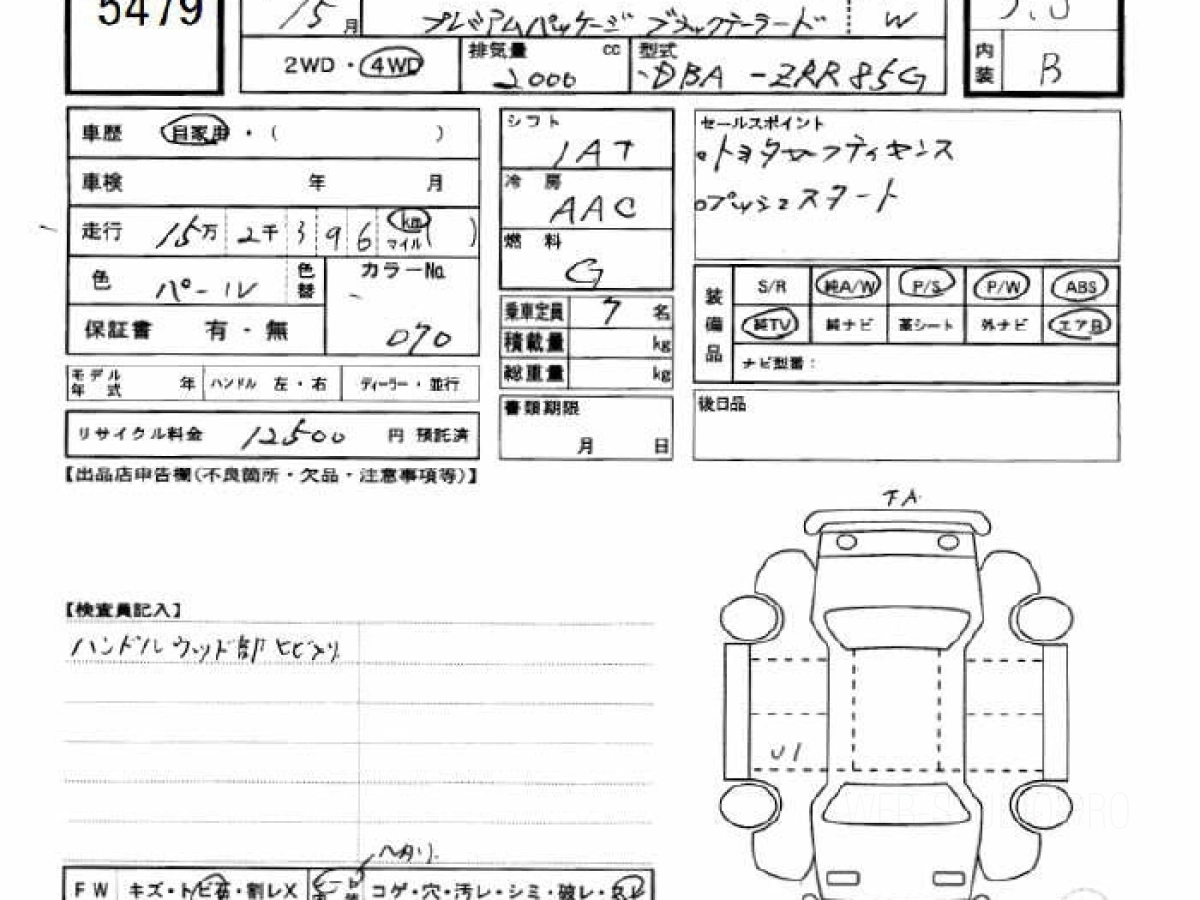 5479
15月
プレミアムパッケージ ブラックテーラード
W
2WD・4WD
排気量 cc
2000
型式
DBA-ZRR85G
内装 B
車歴 自家用・( )
車検 年 月
走行 15万2千396 km マイル( )
色 パール 色替
カラーNo. 070
保証書 有・無
モデル年式 年 ハンドル 左・右 ディーラー・並行
リサイクル料金 12500 円 預託済
シフト
IAT
冷房
AAC
燃料
G
乗車定員 7 名
積載量 kg
総重量 kg
書類期限
月 日
セールスポイント
トヨタセーフティセンス
プッシュスタート
装備品
S/R 純A/W P/S P/W ABS
純TV 純ナビ 革シート 外ナビ エアB
ナビ型番:
後日品
【出品店申告欄(不良箇所・欠品・注意事項等)】
【検査員記入】
ハンドルウッド部ヒビ有り
U1
ヘタリ
FW キズ・トビ石・割レX
コゲ・穴・汚レ・シミ・破レ・スレ